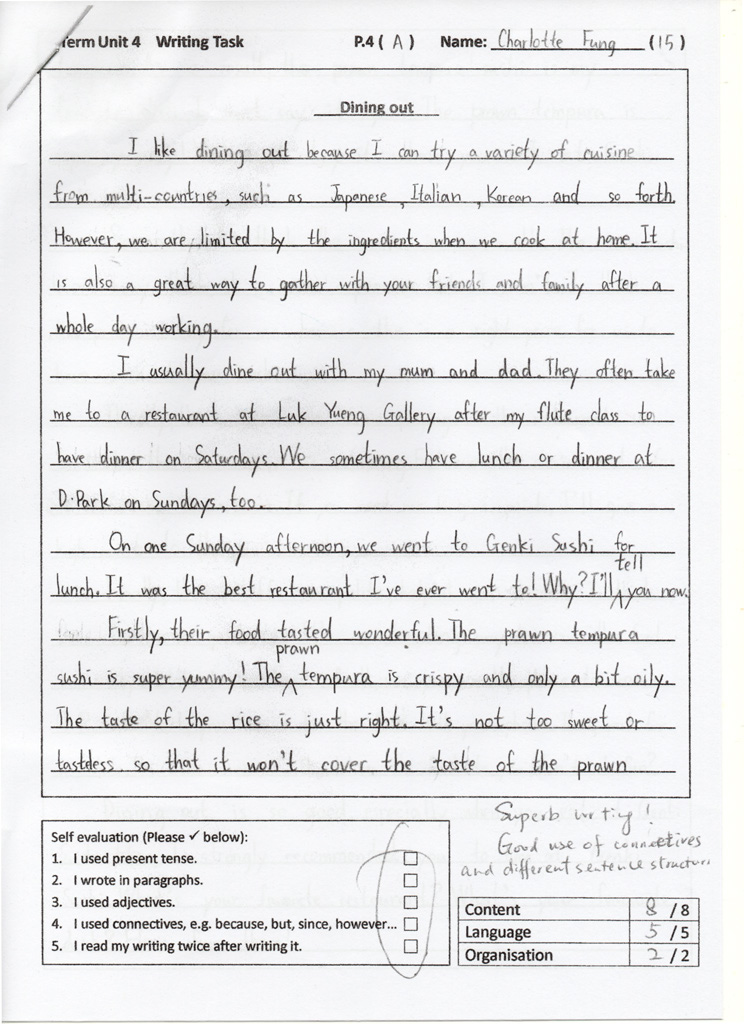 Term Unit 4 Writing Task P.4 ( A ) Name: Charlotte Fung ( 15 )
Dining out
I like dining out because I can try a variety of cuisine
from multi-countries, such as Japanese, Italian, Korean and so forth.
However, we are limited by the ingredients when we cook at home. It
is also a great way to gather with your friends and family after a
whole day working.
I usually dine out with my mum and dad. They often take
me to a restaurant at Luk Yueng Gallery after my flute class to
have dinner on Saturdays. We sometimes have lunch or dinner at
D·Park on Sundays, too.
On one Sunday afternoon, we went to Genki Sushi for
tell
lunch. It was the best restaurant I've ever went to! Why? I'll ^ you now.
Firstly, their food tasted wonderful. The prawn tempura
prawn
sushi is super yummy! The ^ tempura is crispy and only a bit oily.
The taste of the rice is just right. It's not too sweet or
tasteless so that it won't cover the taste of the prawn
Superb writing!
Good use of connectives
and different sentence structures
Self evaluation (Please ✓ below):
1. I used present tense. ☐
2. I wrote in paragraphs. ☐
3. I used adjectives. ☐
4. I used connectives, e.g. because, but, since, however... ☐
5. I read my writing twice after writing it. ☐
Content 8 / 8
Language 5 / 5
Organisation 2 / 2